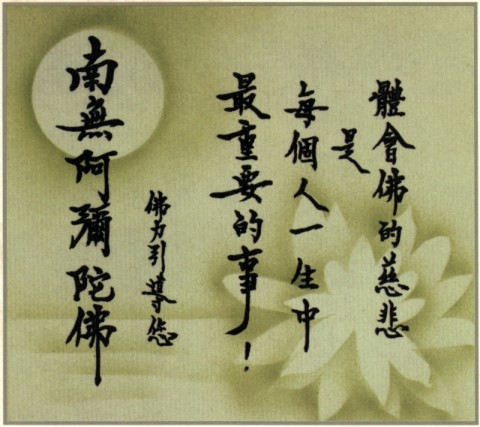 體會佛的慈悲
是
每個人一生中
最重要的事！
佛力引導您
南無阿彌陀佛